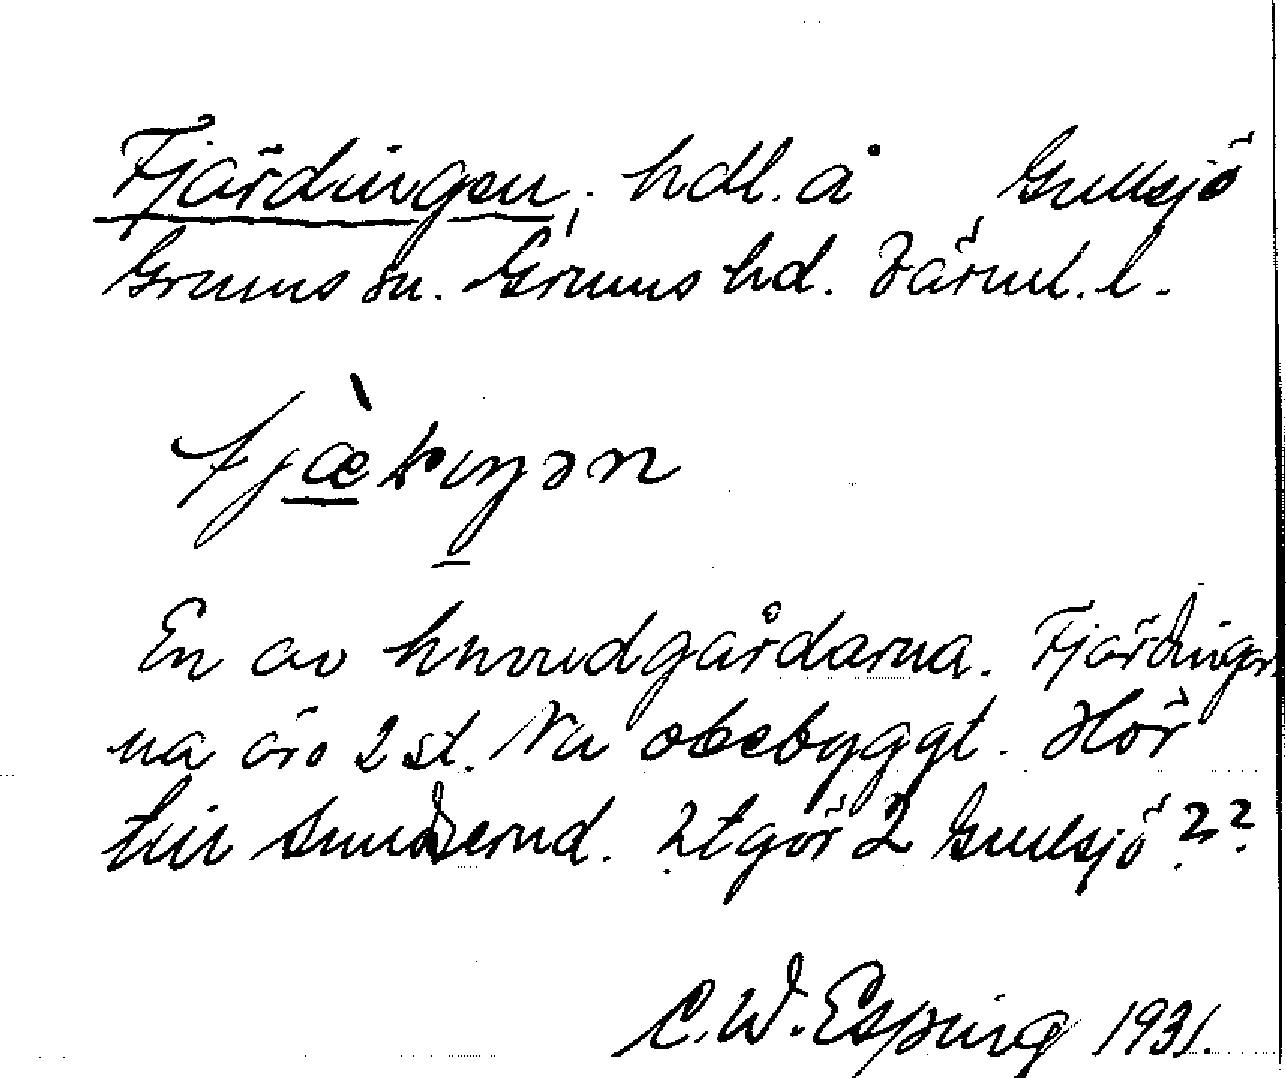 Fjärdingen, hdl. å Gullsjö
Grums sn. Grums hd. Värml. l.
fjæ̀ḍıŋən
En av huvudgårdarna. Fjärdingar
na äro 2 st. Na obebyggt. Hör
till Sunderud. Utgör 2 Gullsjö ??
C. W. Esping 1931.